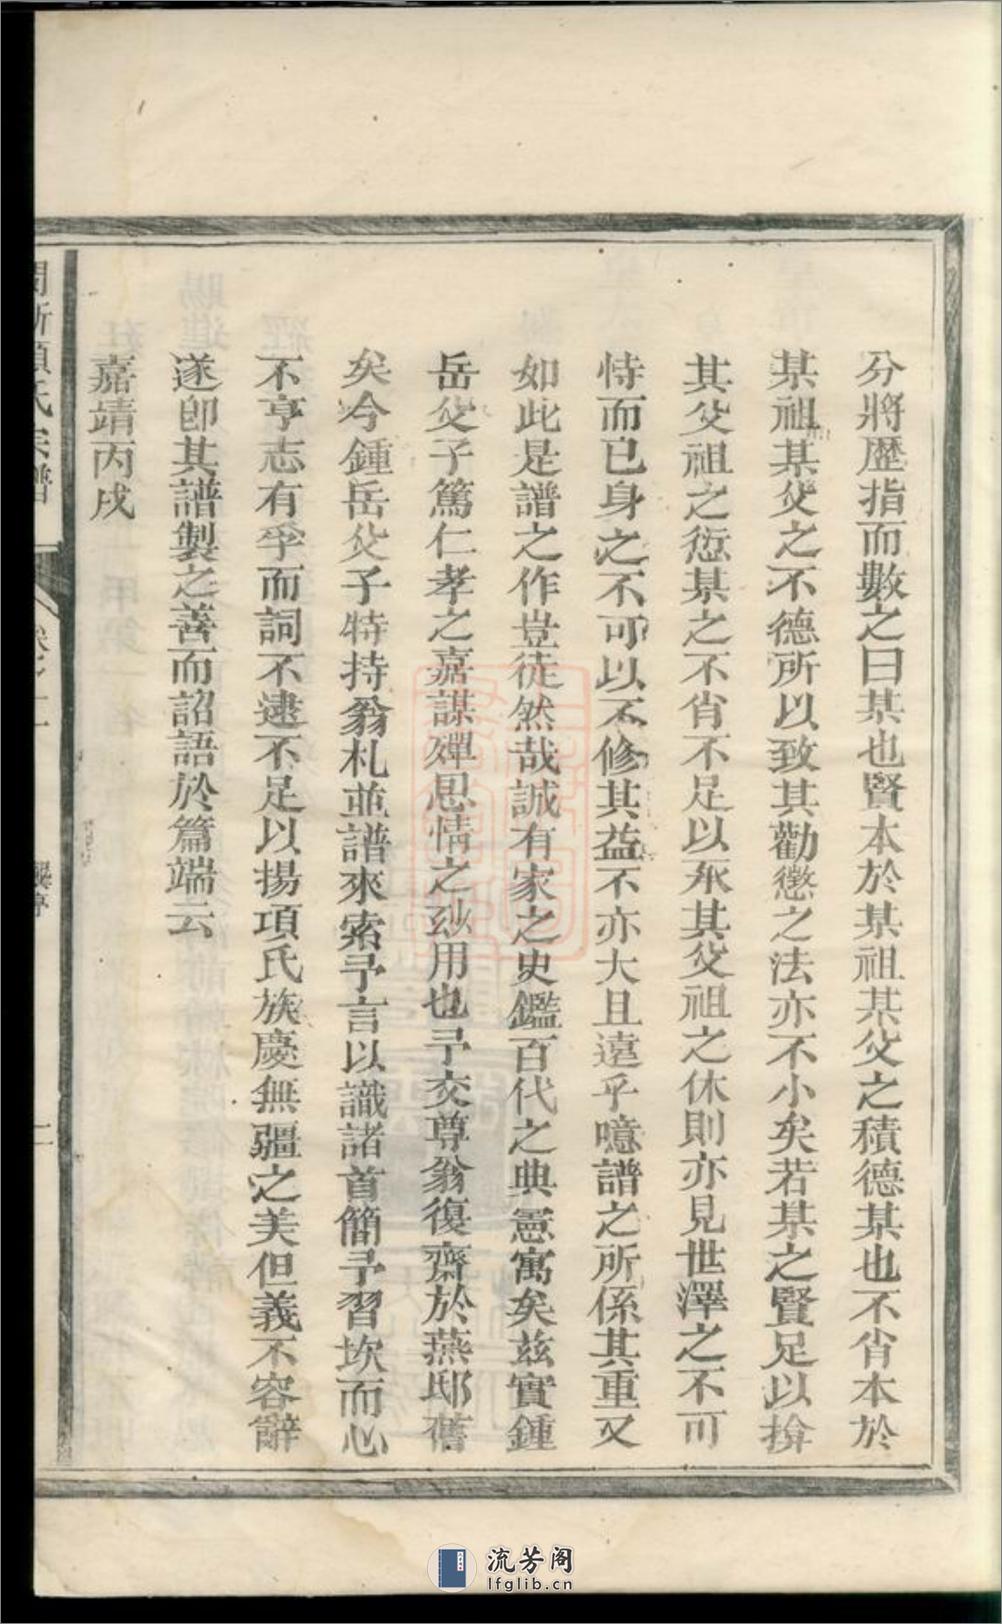 分將歷指而數之曰某也賢本於某祖某父之積德某也不肖本於
某祖某父之不德所以致其勸懲之法亦不小矣若某之賢足以揜
其父祖之愆某之不肖不足以承其父祖之休則亦見世澤之不可
恃而已身之不可以不修其益不亦大且遠乎噫譜之所係其重又
如此是譜之作豈徒然哉誠有家之史鑑百代之典憲寓矣茲實鍾
岳父子篤仁孝之嘉謀殫思情之玅用也予交尊翁復齋於燕邸舊
矣今鍾岳父子特持翁札並譜來索予言以識諸首簡予習坎而心
不亨志有孚而詞不逮不足以揚項氏族慶無疆之美但義不容辭
遂卽其譜製之善而詔語於篇端云
嘉靖丙戌
項氏宗譜
卷之一
二
流芳阁
lfglib.cn